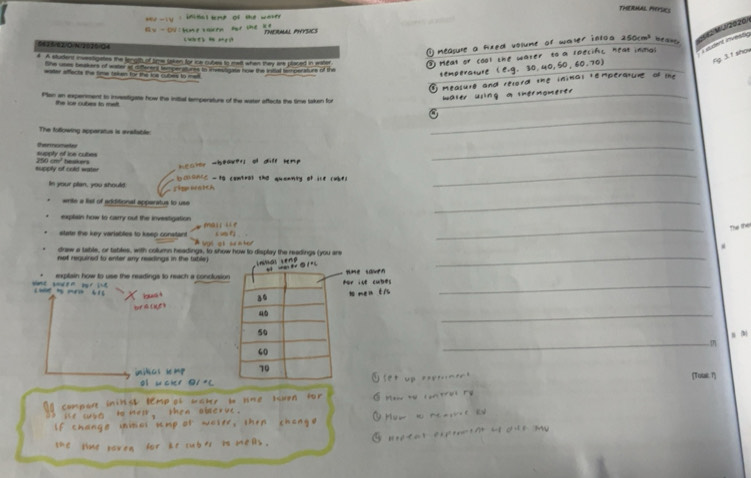 THERMAL PHYSICS
MV - IV : initial temp of the water
THERMAL PHYSICS
cubes to melt
0625/62/O/N/2020/Q4
4 A student investigates the length of time taken for ice cubes to melt when they are placed in water.
She uses beakers of water at different temperatures to investigate how the initial temperature of the
water affects the time taken for the ice cubes to melt.
Plan an experiment to investigate how the initial temperature of the water affects the time taken for
the ice cubes to melt.
The following apparatus is available:
thermometer
supply of ice cubes
250 cm³ beakers
supply of cold water
heater → beakers of diff temp
balance - to control the quantity of ice cubes
stopwatch
In your plan, you should:
• write a list of additional apparatus to use
• explain how to carry out the investigation
• state the key variables to keep constant
mass ice
cubes
vol of water
• draw a table, or tables, with column headings, to show how to display the readings (you are
not required to enter any readings in the table)
• explain how to use the readings to reach a conclusion
initial temp
of water θ/°C
time taken
for ice cubes
to melt t/s
30
40
50
60
70
time taken for ice
cube to melt t/s
brackets
initial temp
of water θ/°C
compare initial temp of water to time taken for
ice cube to melt, then observe.
If change initial temp of water, then change
the time taken for ice cubes to melt.
① Measure a fixed volume of water into a 250cm³ beaker
② Heat or cool the water to a specific heat initial
temperature (e.g. 30, 40, 50, 60, 70)
③ measure and record the initial temperature of the
water using a thermometer
④
[7]
[Total: 7]
① set up experiment
② How to control CV
③ How to measure DV
④ repeat experiment w/ diff
Fig. 3.1 show
The the